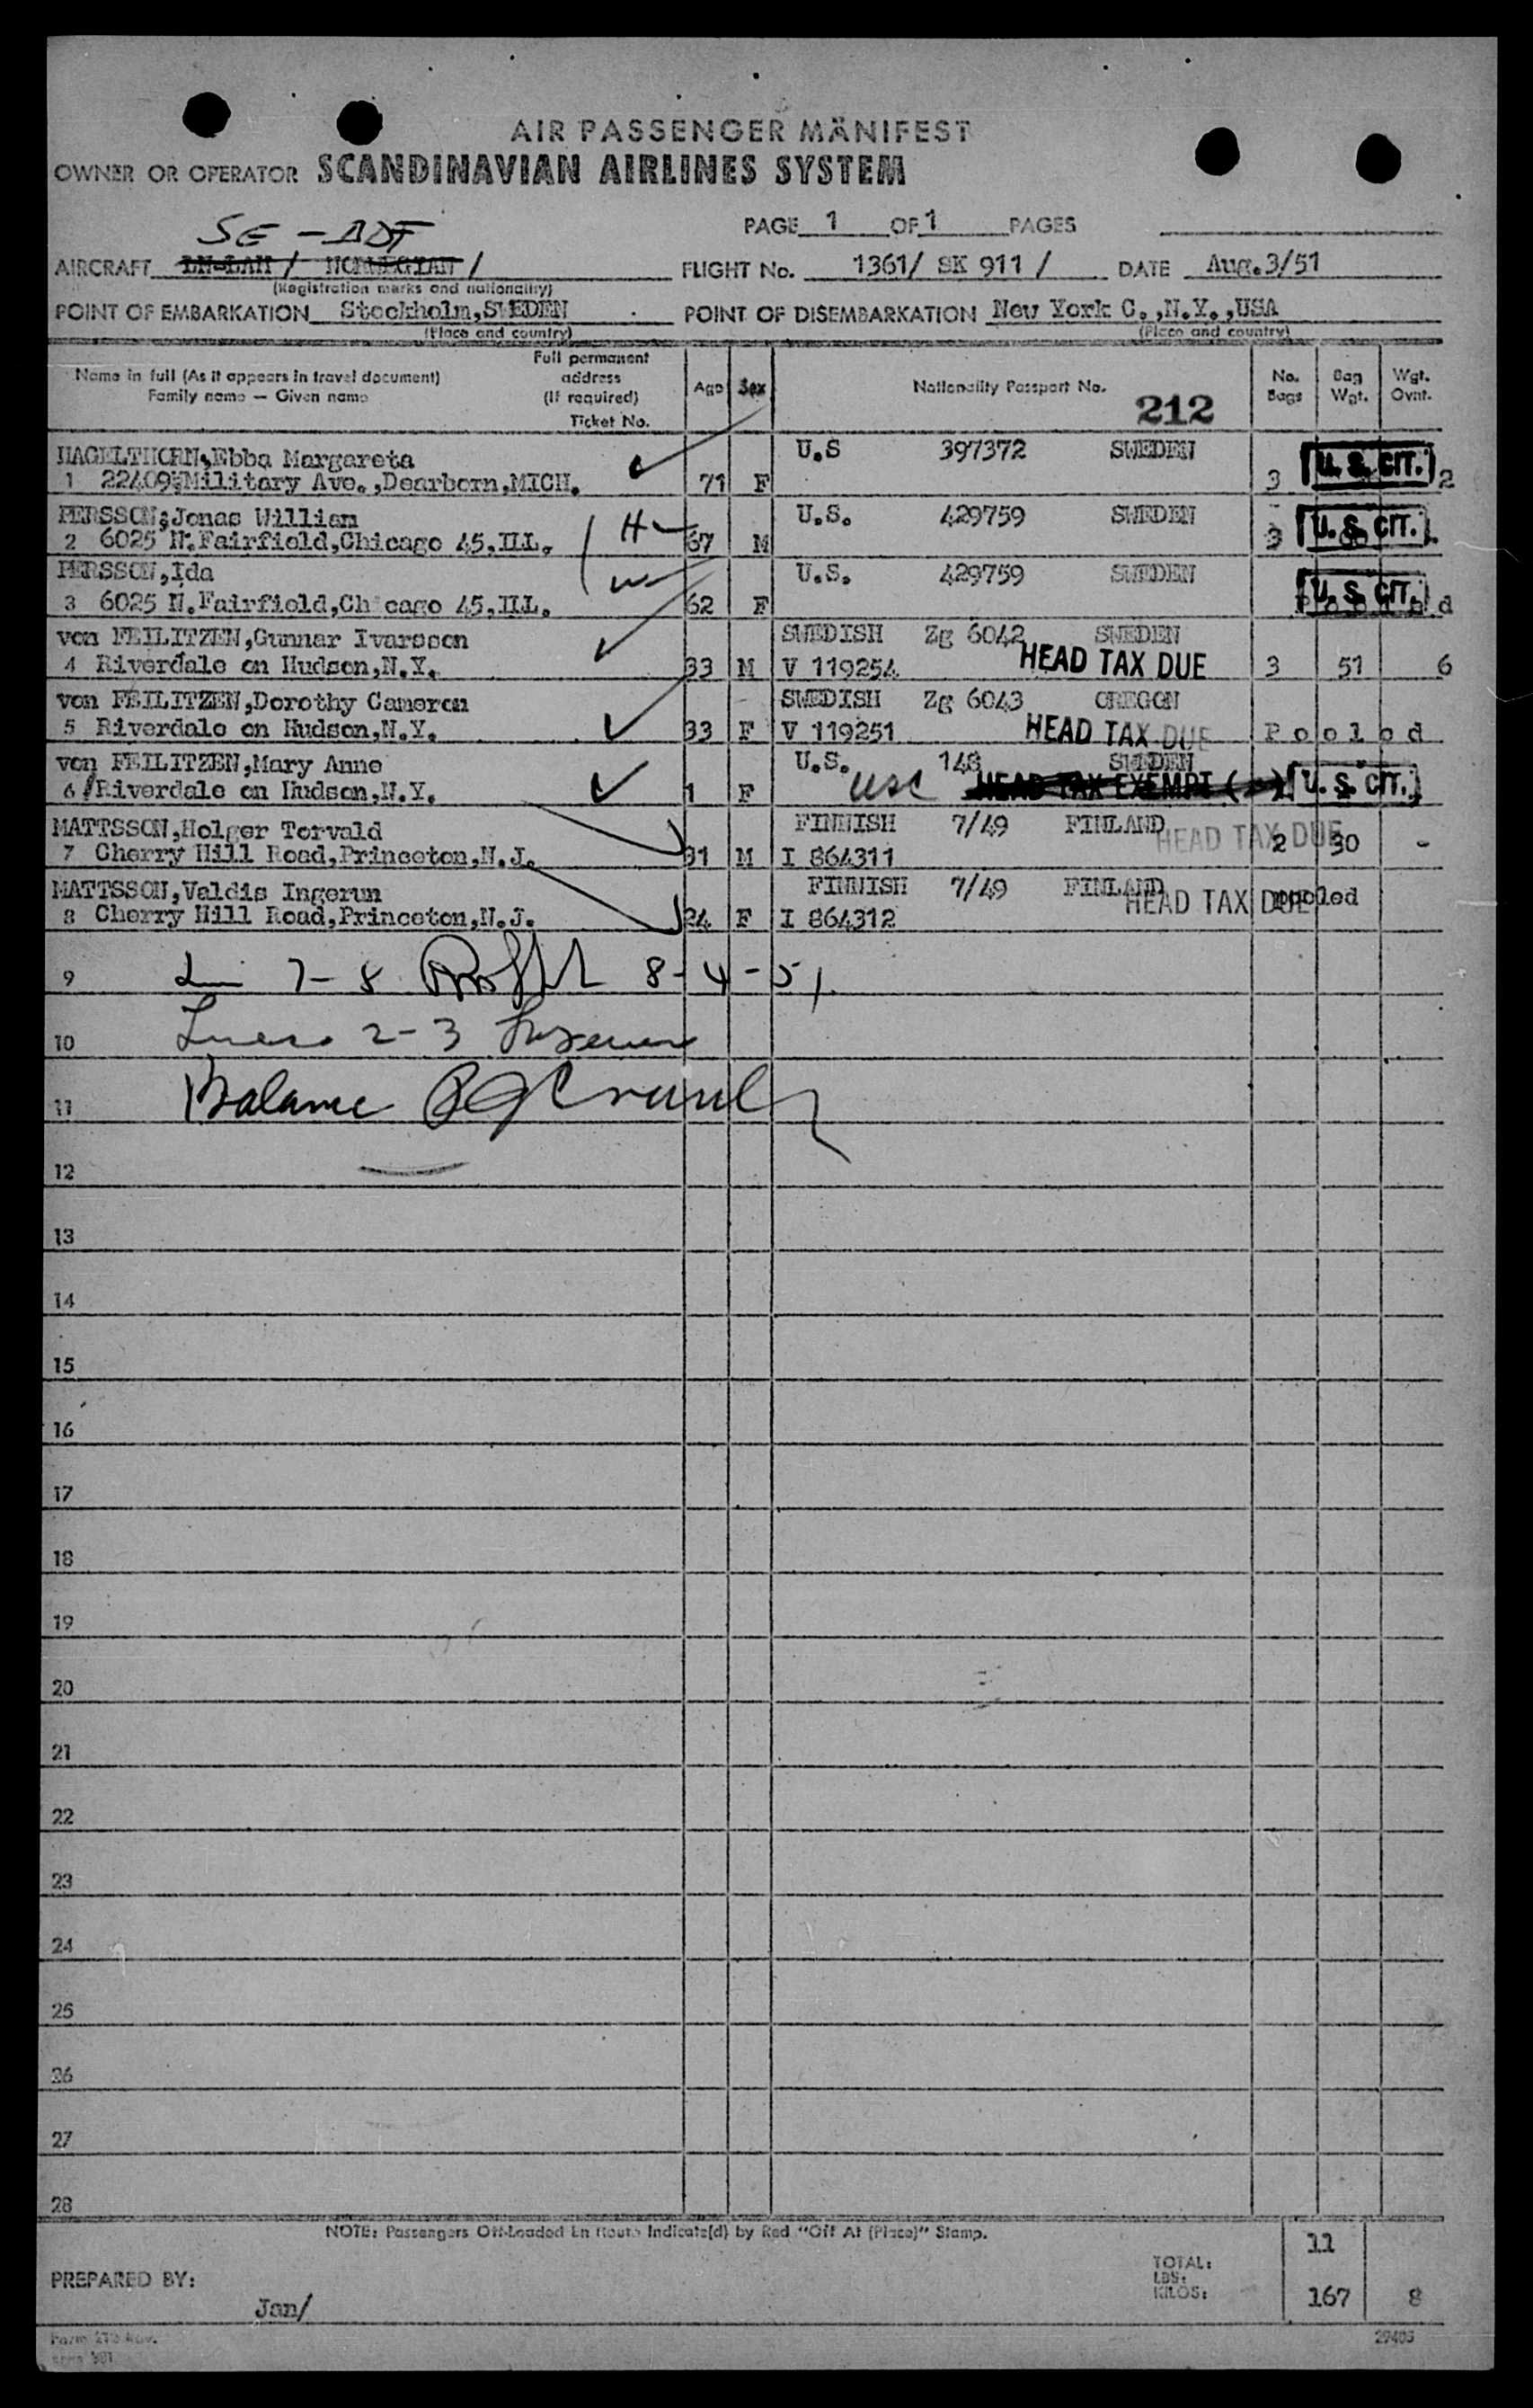 AIR PASSENGER MÄNIFEST
OWNER OR OPERATOR SCANDINAVIAN AIRLINES SYSTEM
SE-BDF
PAGE 1 OF 1 PAGES
AIRCRAFT LN-LAM / NORWEGIAN / FLIGHT No. 1361/ SK 911 / DATE Aug.3/51
(Registration marks and nationality)
POINT OF EMBARKATION Stockholm,SWEDEN POINT OF DISEMBARKATION New York C.,N.Y.,USA
(Place and country) (Place and country)
Name in full (As it appears in travel document) Family name — Given name
Full permanent address (If required) Ticket No.
Age Sex Nationality Passport No. 212 No. Bags Bag Wgt. Wgt. Ovnt.
HAGELTHORN,Ebba Margareta U.S 397372 SWEDEN
1 22409 Military Ave.,Dearborn,MICH. 71 F 3 U.S. CIT. 2
PERSSON,Jonas William U.S. 429759 SWEDEN
2 6025 N.Fairfield,Chicago 45,ILL. H 67 M 3 U.S. CIT.
PERSSON,Ida U.S. 429759 SWEDEN
3 6025 N.Fairfield,Ch cago 45,ILL. W 62 F U.S. CIT. d
von FEILITZEN,Gunnar Ivarsson SWEDISH Zg 6042 SWEDEN
4 Riverdale on Hudson,N.Y. 33 M V 119254 HEAD TAX DUE 3 51 6
von FEILITZEN,Dorothy Cameron SWEDISH Zg 6043 OREGON
5 Riverdale on Hudson,N.Y. 33 F V 119251 HEAD TAX DUE P o o l e d
von FEILITZEN,Mary Anne U.S. 148 SWEDEN
6 Riverdale on Hudson,N.Y. 1 F USC HEAD TAX EXEMPT U.S. CIT.
MATTSSON,Holger Torvald FINNISH 7/49 FINLAND HEAD TAX DUE
7 Cherry Hill Road,Princeton,N.J. 31 M I 864311 2 30 -
MATTSSON,Valdis Ingerun FINNISH 7/49 FINLAND HEAD TAX DUE pooled
8 Cherry Hill Road,Princeton,N.J. 24 F I 864312
9 7-8 8-4-51
10 Lines 2-3
11 Balance
12
13
14
15
16
17
18
19
20
21
22
23
24
25
26
27
28
NOTE: Passengers Off-Loaded En Route Indicate(d) by Red "Off At (Place)" Stamp.
11
TOTAL:
LBS:
KILOS: 167 8
PREPARED BY:
Jan/
29403